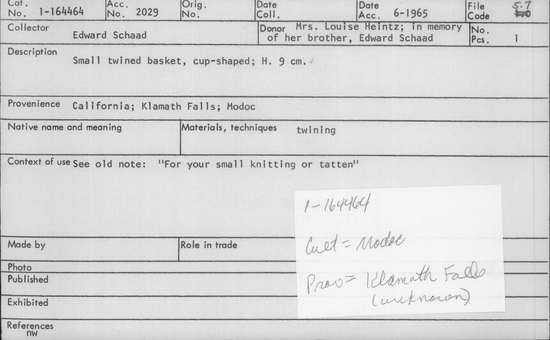 Cat. No. 1-164464 Acc. No. 2029 Orig. No. Date Coll. Date Acc. 6-1965 File Code 5.7
Collector Edward Schaad Donor Mrs. Louise Heintz; in memory of her brother, Edward Schaad No. Pcs. 1
Description
Small twined basket, cup-shaped; H. 9 cm.
Provenience California; Klamath Falls; Modoc
Native name and meaning Materials, techniques twining
Context of use See old note: "For your small knitting or tatten"
1-164464
Cult = Modoc
Prov = Klamath Falls
(unknown)
Made by Role in trade
Photo
Published
Exhibited
References
nw